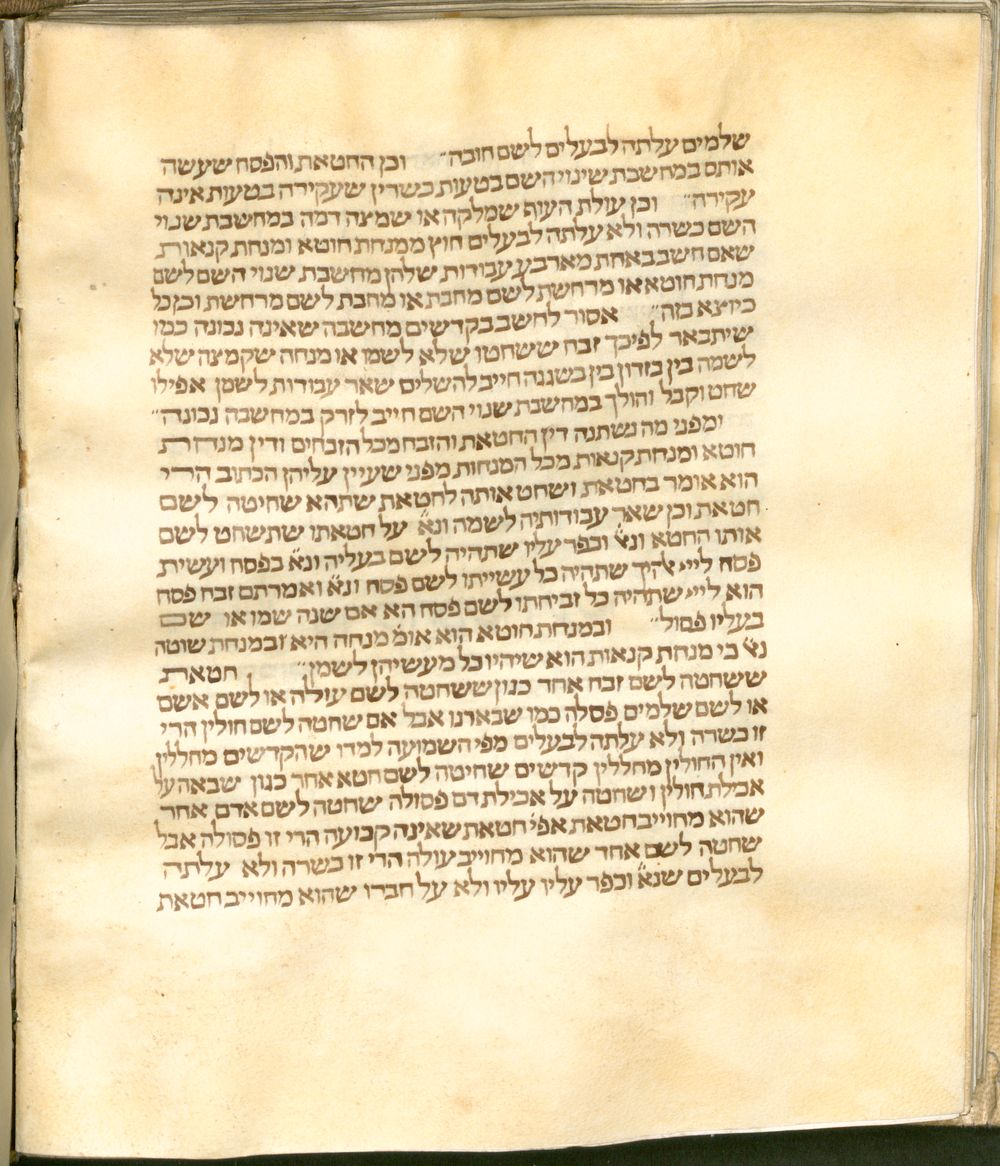 שלמים עלתה לבעלים לשם חובה״ וכן החטאת והפסח שעשה
אותם במחשבת שינוי השם בטעות כשרין שעקירה בטעות אינה
עקירה״ וכן עולת העוף שמלקה או שמצה דמה במחשבת שנוי
השם כשרה ולא עלתה לבעלים חוץ ממנחת חוטא ומנחת קנאות
שאם חישב באחת מארבע עבודות שלהן מחשבת שנוי השם לשם
מנחת חוטא או מרחשת לשם מחבת או מחבת לשם מרחשת וכן כל
כיוצא בזה״ אסור לחשב בקדשים מחשבה שאינה נכונה כמו
שיתבאר לפיכך זבח ששחטו שלא לשמו או מנחה שקמצה שלא
לשמה בין בזדון בין בשגגה חייב להשלים שאר עבודות לשמן אפילו
שחט וקבל והולך במחשבת שנוי השם חייב לזרק במחשבה נכונה״
ומפני מה נשתנה דין החטאת והזבח מכל הזבחים ודין מנחת
חוטא ומנחת קנאות מכל המנחות מפני שעיין עליהן הכתוב הרי
הוא אומר בחטאת ושחט אותה לחטאת שתהא שחיטה לשם
חטאת וכן שאר עבודותיה לשמה ונא̇ על חטאתו שתשחט לשם
אותו החטא ונא̇ וכפר עליו שתהיה לשם בעליה ונא̇ בפסח ועשית
פסח לייי צריך שתהיה כל עשייתו לשם פסח ונא̇ ואמרתם זבח פסח
הוא לייי שתהיה כל זביחתו לשם פסח הא אם שנה שמו או שם
בעליו פסול״ ובמנחת חוטא הוא אומ̇ מנחה היא ובמנחת שוטה
נא̇ כי מנחת קנאות הוא שיהיו כל מעשיהן לשמן״ חטאת
ששחטה לשם זבח אחד כגון ששחטה לשם עולה או לשם אשם
או לשם שלמים פסלה כמו שבארנו אבל אם שחטה לשם חולין הרי
זו כשרה ולא עלתה לבעלים מפי השמועה למדו שהקדשים מחללין
ואין החולין מחללין קדשים שחיטה לשם חטא אחר כגון שבאה על
אכילת חולין ושחטה על אכילת דם פסולה שחטה לשם אדם אחר
שהוא מחוייב חטאת אפי̇ חטאת שאינה קבועה הרי זו פסולה אבל
שחטה לשם אחד שהוא מחוייב עולה הרי זו כשרה ולא עלתה
לבעלים שנא̇ וכפר עליו עליו ולא על חברו שהוא מחוייב חטאת